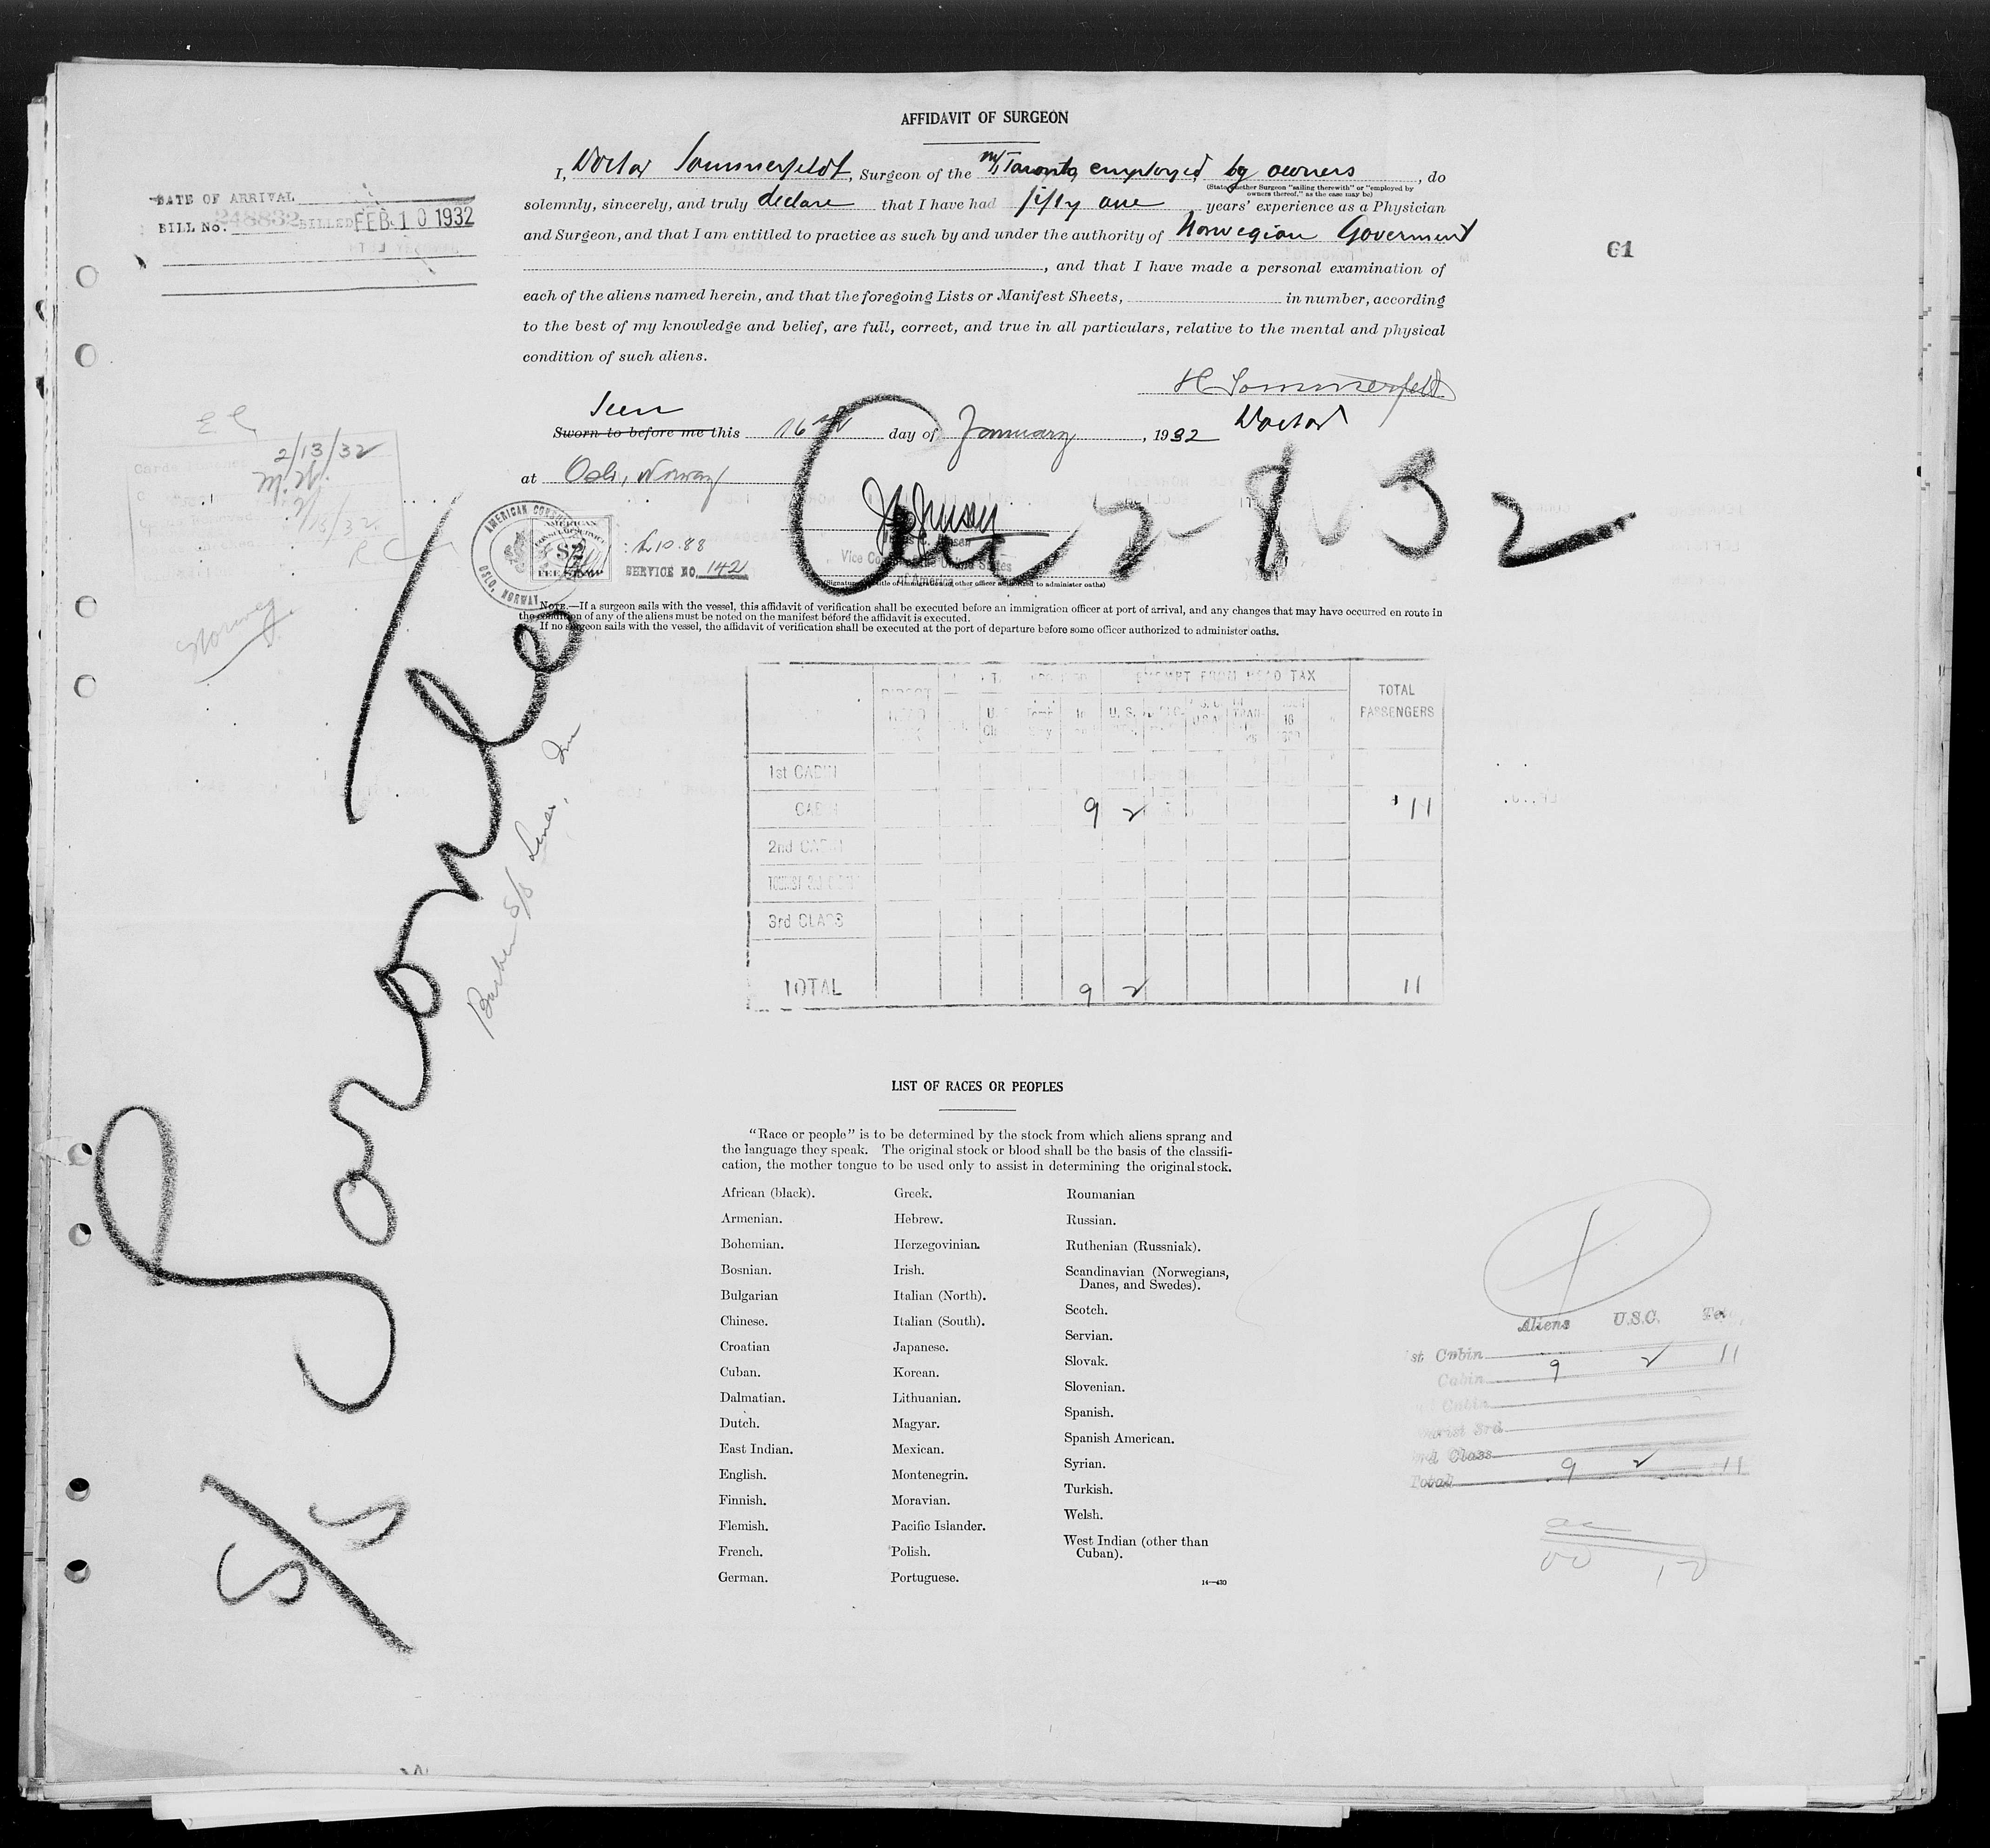 AFFIDAVIT OF SURGEON
I, Doctor Sommerfeldt, Surgeon of the M/S Taronto, employed by owners, do
(State whether Surgeon "sailing therewith" or "employed by
owners thereof," as the case may be)
solemnly, sincerely, and truly declare that I have had fifty one years' experience as a Physician
and Surgeon, and that I am entitled to practice as such by and under the authority of Norwegian Goverment
, and that I have made a personal examination of
each of the aliens named herein, and that the foregoing Lists or Manifest Sheets, in number, according
to the best of my knowledge and belief, are full, correct, and true in all particulars, relative to the mental and physical
condition of such aliens.
H Sommerfeldt
Doctor
Seen
Sworn to before me this 16th day of January, 1932
at Oslo, Norway
DATE OF ARRIVAL
BILL No. 248832 BILLED FEB 10 1932
61
2/13/32
Norway
AMERICAN
OSLO, NORWAY
AMERICAN
CONSULAR SERVICE
$2
FEE STAMP
10.88
SERVICE NO. 142
Vice Consul of the United States
of America
2-8-32
NOTE.—If a surgeon sails with the vessel, this affidavit of verification shall be executed before an immigration officer at port of arrival, and any changes that may have occurred en route in
the condition of any of the aliens must be noted on the manifest before the affidavit is executed.
If no surgeon sails with the vessel, the affidavit of verification shall be executed at the port of departure before some officer authorized to administer oaths.
S/S Toronto
Barber S/S Lines, Inc
EXEMPT FROM HEAD TAX
TOTAL
PASSENGERS
1st CABIN
CABIN 9 2 11
2nd CABIN
3rd CLASS
TOTAL 9 2 11
LIST OF RACES OR PEOPLES
"Race or people" is to be determined by the stock from which aliens sprang and
the language they speak. The original stock or blood shall be the basis of the classifi-
cation, the mother tongue to be used only to assist in determining the original stock.
African (black).
Armenian.
Bohemian.
Bosnian.
Bulgarian
Chinese.
Croatian
Cuban.
Dalmatian.
Dutch.
East Indian.
English.
Finnish.
Flemish.
French.
German.
Greek.
Hebrew.
Herzegovinian.
Irish.
Italian (North).
Italian (South).
Japanese.
Korean.
Lithuanian.
Magyar.
Mexican.
Montenegrin.
Moravian.
Pacific Islander.
Polish.
Portuguese.
Roumanian
Russian.
Ruthenian (Russniak).
Scandinavian (Norwegians,
Danes, and Swedes).
Scotch.
Servian.
Slovak.
Slovenian.
Spanish.
Spanish American.
Syrian.
Turkish.
Welsh.
West Indian (other than
Cuban).
14—430
Aliens U.S.C.
st Cabin
Cabin 9 2 11
Class
Total 9 2 11